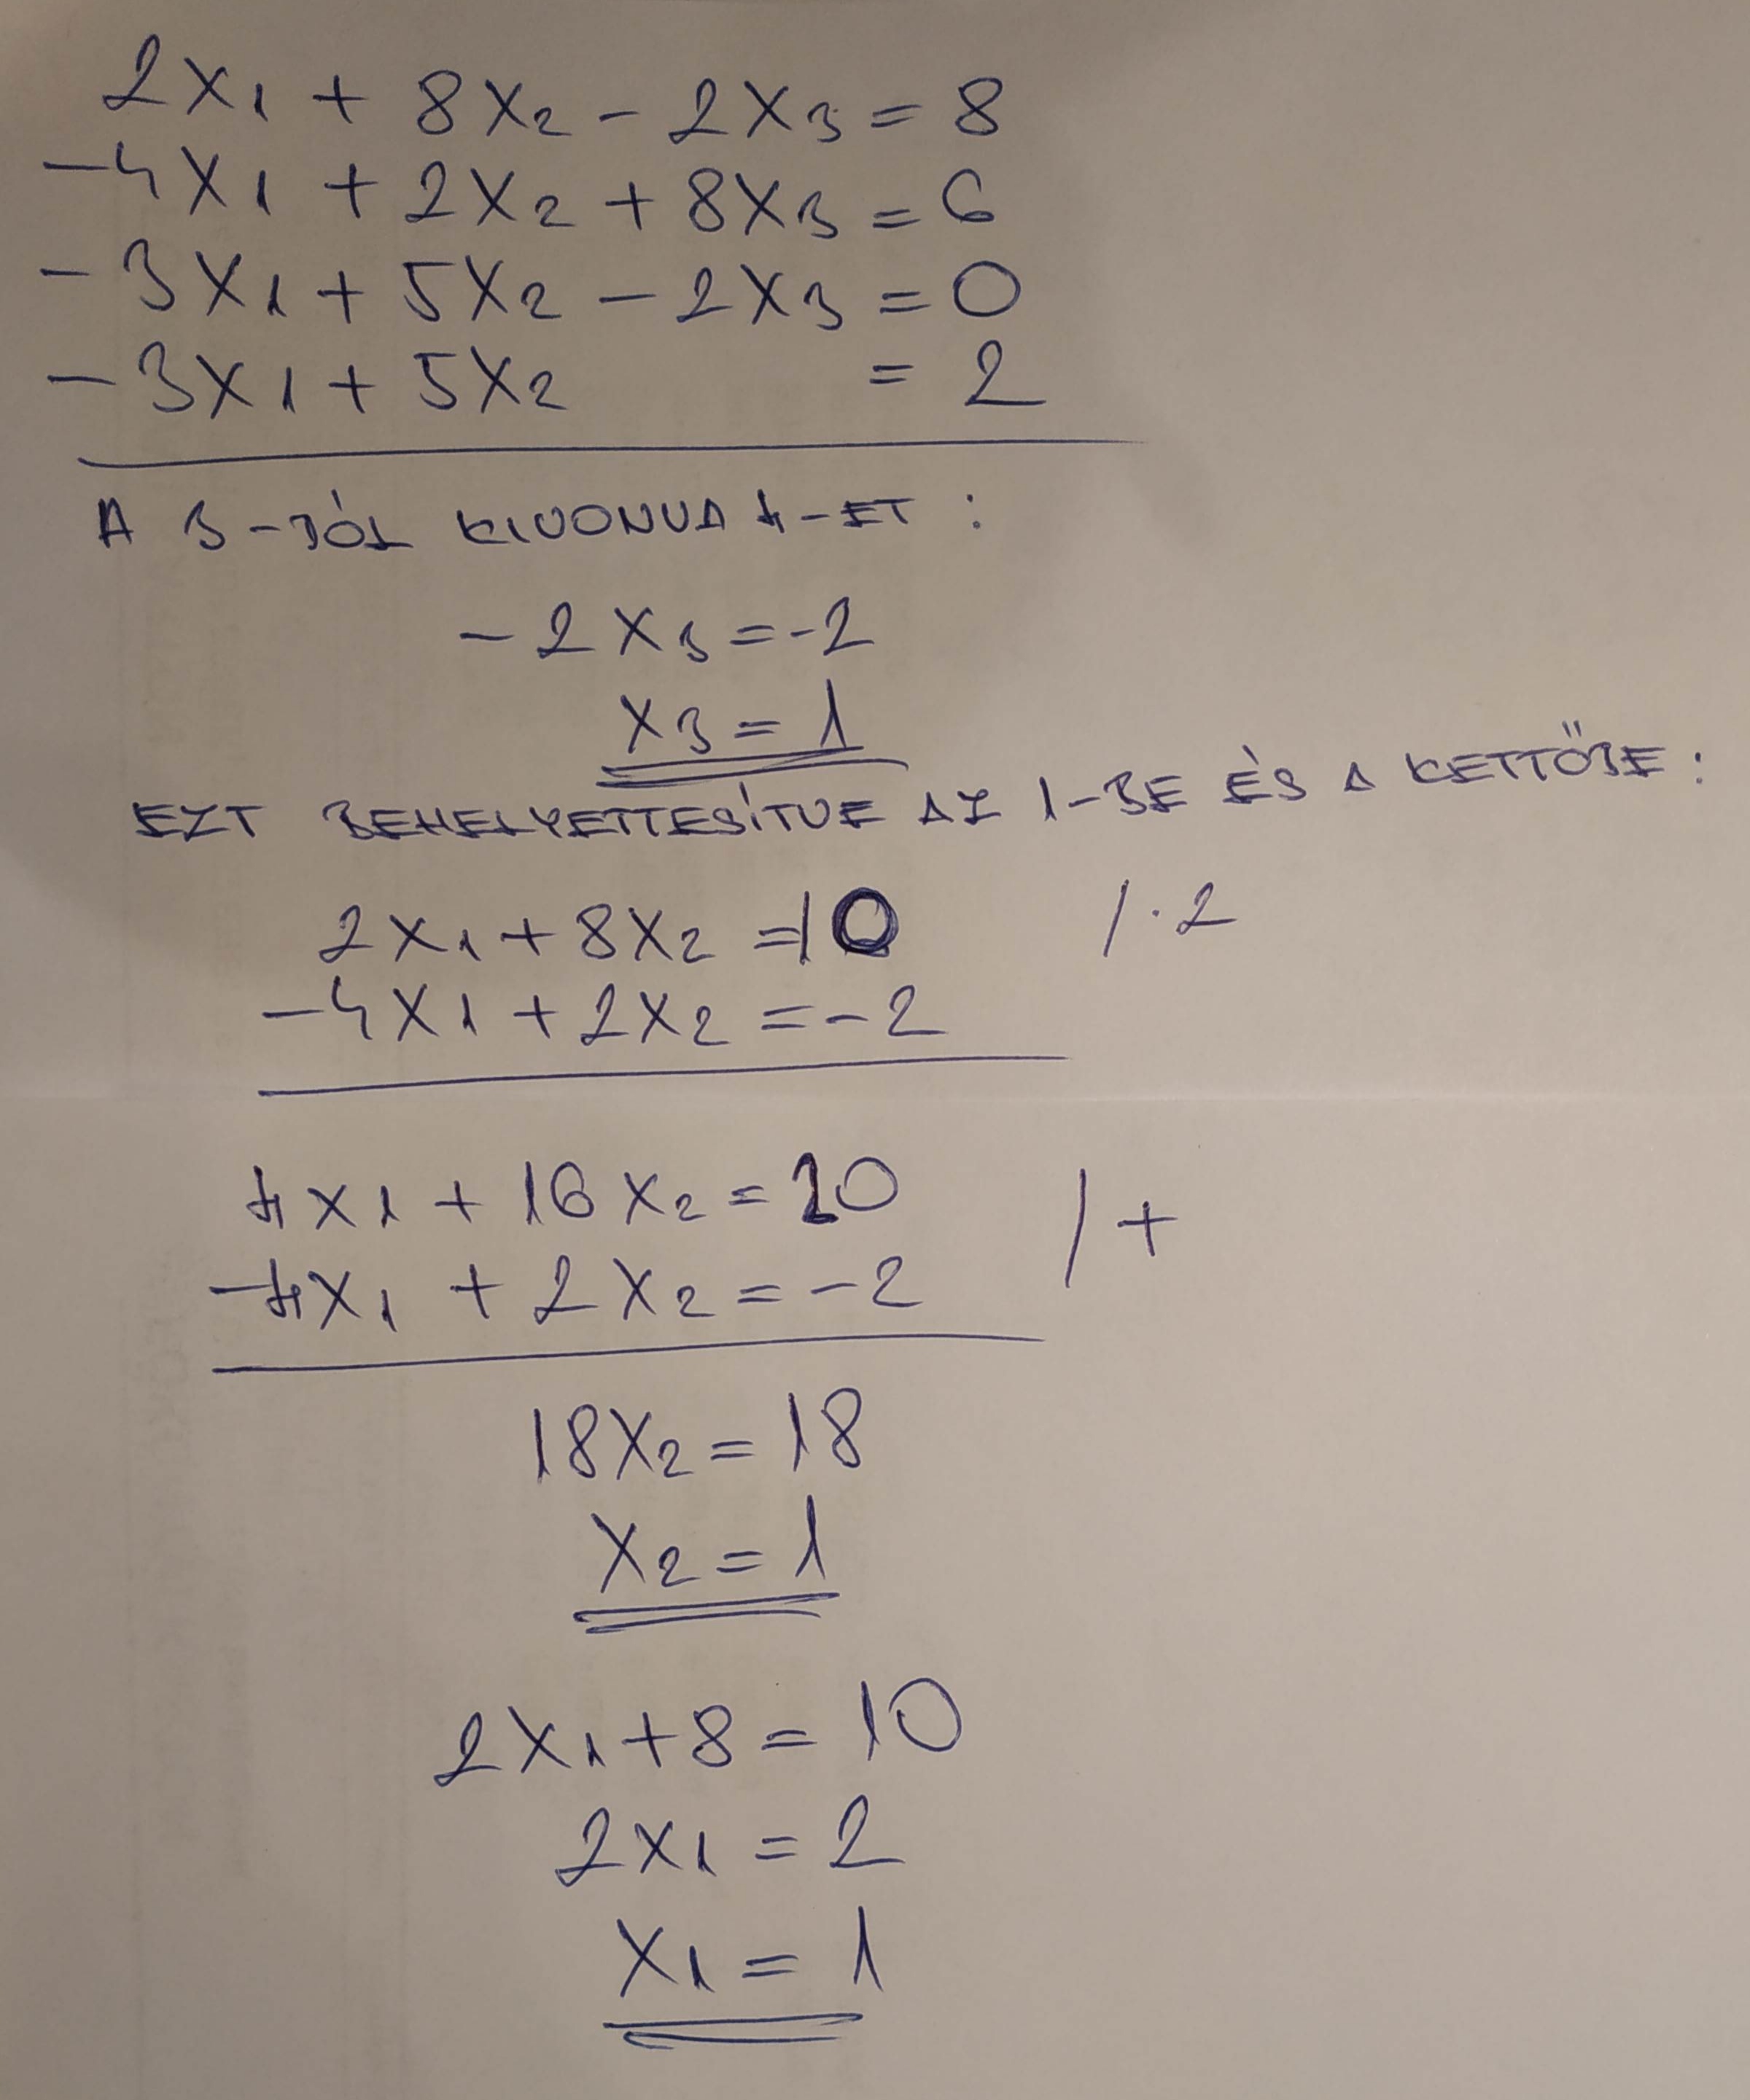 2x₁ + 8x₂ - 2x₃ = 8
-4x₁ + 2x₂ + 8x₃ = 6
-3x₁ + 5x₂ - 2x₃ = 0
-3x₁ + 5x₂ = 2
A 3-BÓL KIVONVA 4-ET :
-2x₃ = -2
x₃ = 1
EZT BEHELYETTESÍTVE AZ 1-BE ÉS A KETTŐBE :
2x₁ + 8x₂ = 10 / · 2
-4x₁ + 2x₂ = -2
4x₁ + 16x₂ = 20 / +
-4x₁ + 2x₂ = -2
18x₂ = 18
x₂ = 1
2x₁ + 8 = 10
2x₁ = 2
x₁ = 1